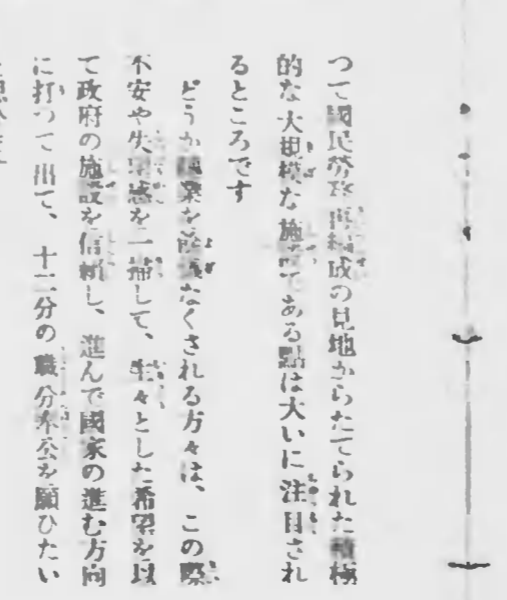 つて國民勞務再編成の見地からたてられた積極
的な大規模な施設である點は大いに注目され
るところです
どうか轉業を餘儀なくされる方々は、この際
不安や失望感を一掃して、生々とした希望を以
て政府の施設を信頼し、進んで國家の進む方向
に打つて出て、十二分の職分奉公を願ひたい